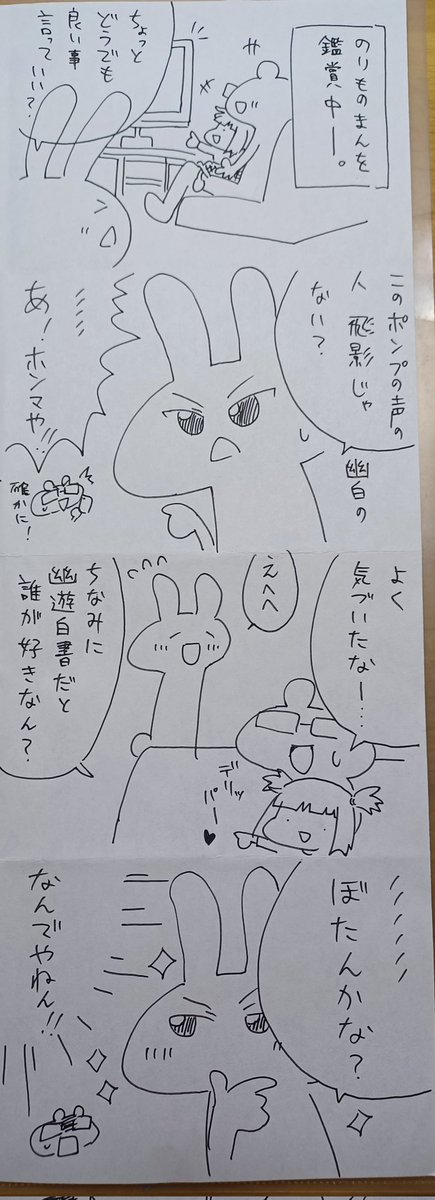 のりものまんを
鑑賞中ー。
ちょっと
どうでも
良い事
言っていい？
このポンプの声の
人
幽白の
飛影じゃ
ない？
あ！ホンマや!!
確かに！
よく
気づいたなー…
えへへ
デリッ
パー♥
ちなみに
幽遊白書だと
誰が好きなん？
ぼたんかな？
なんでやねん!!